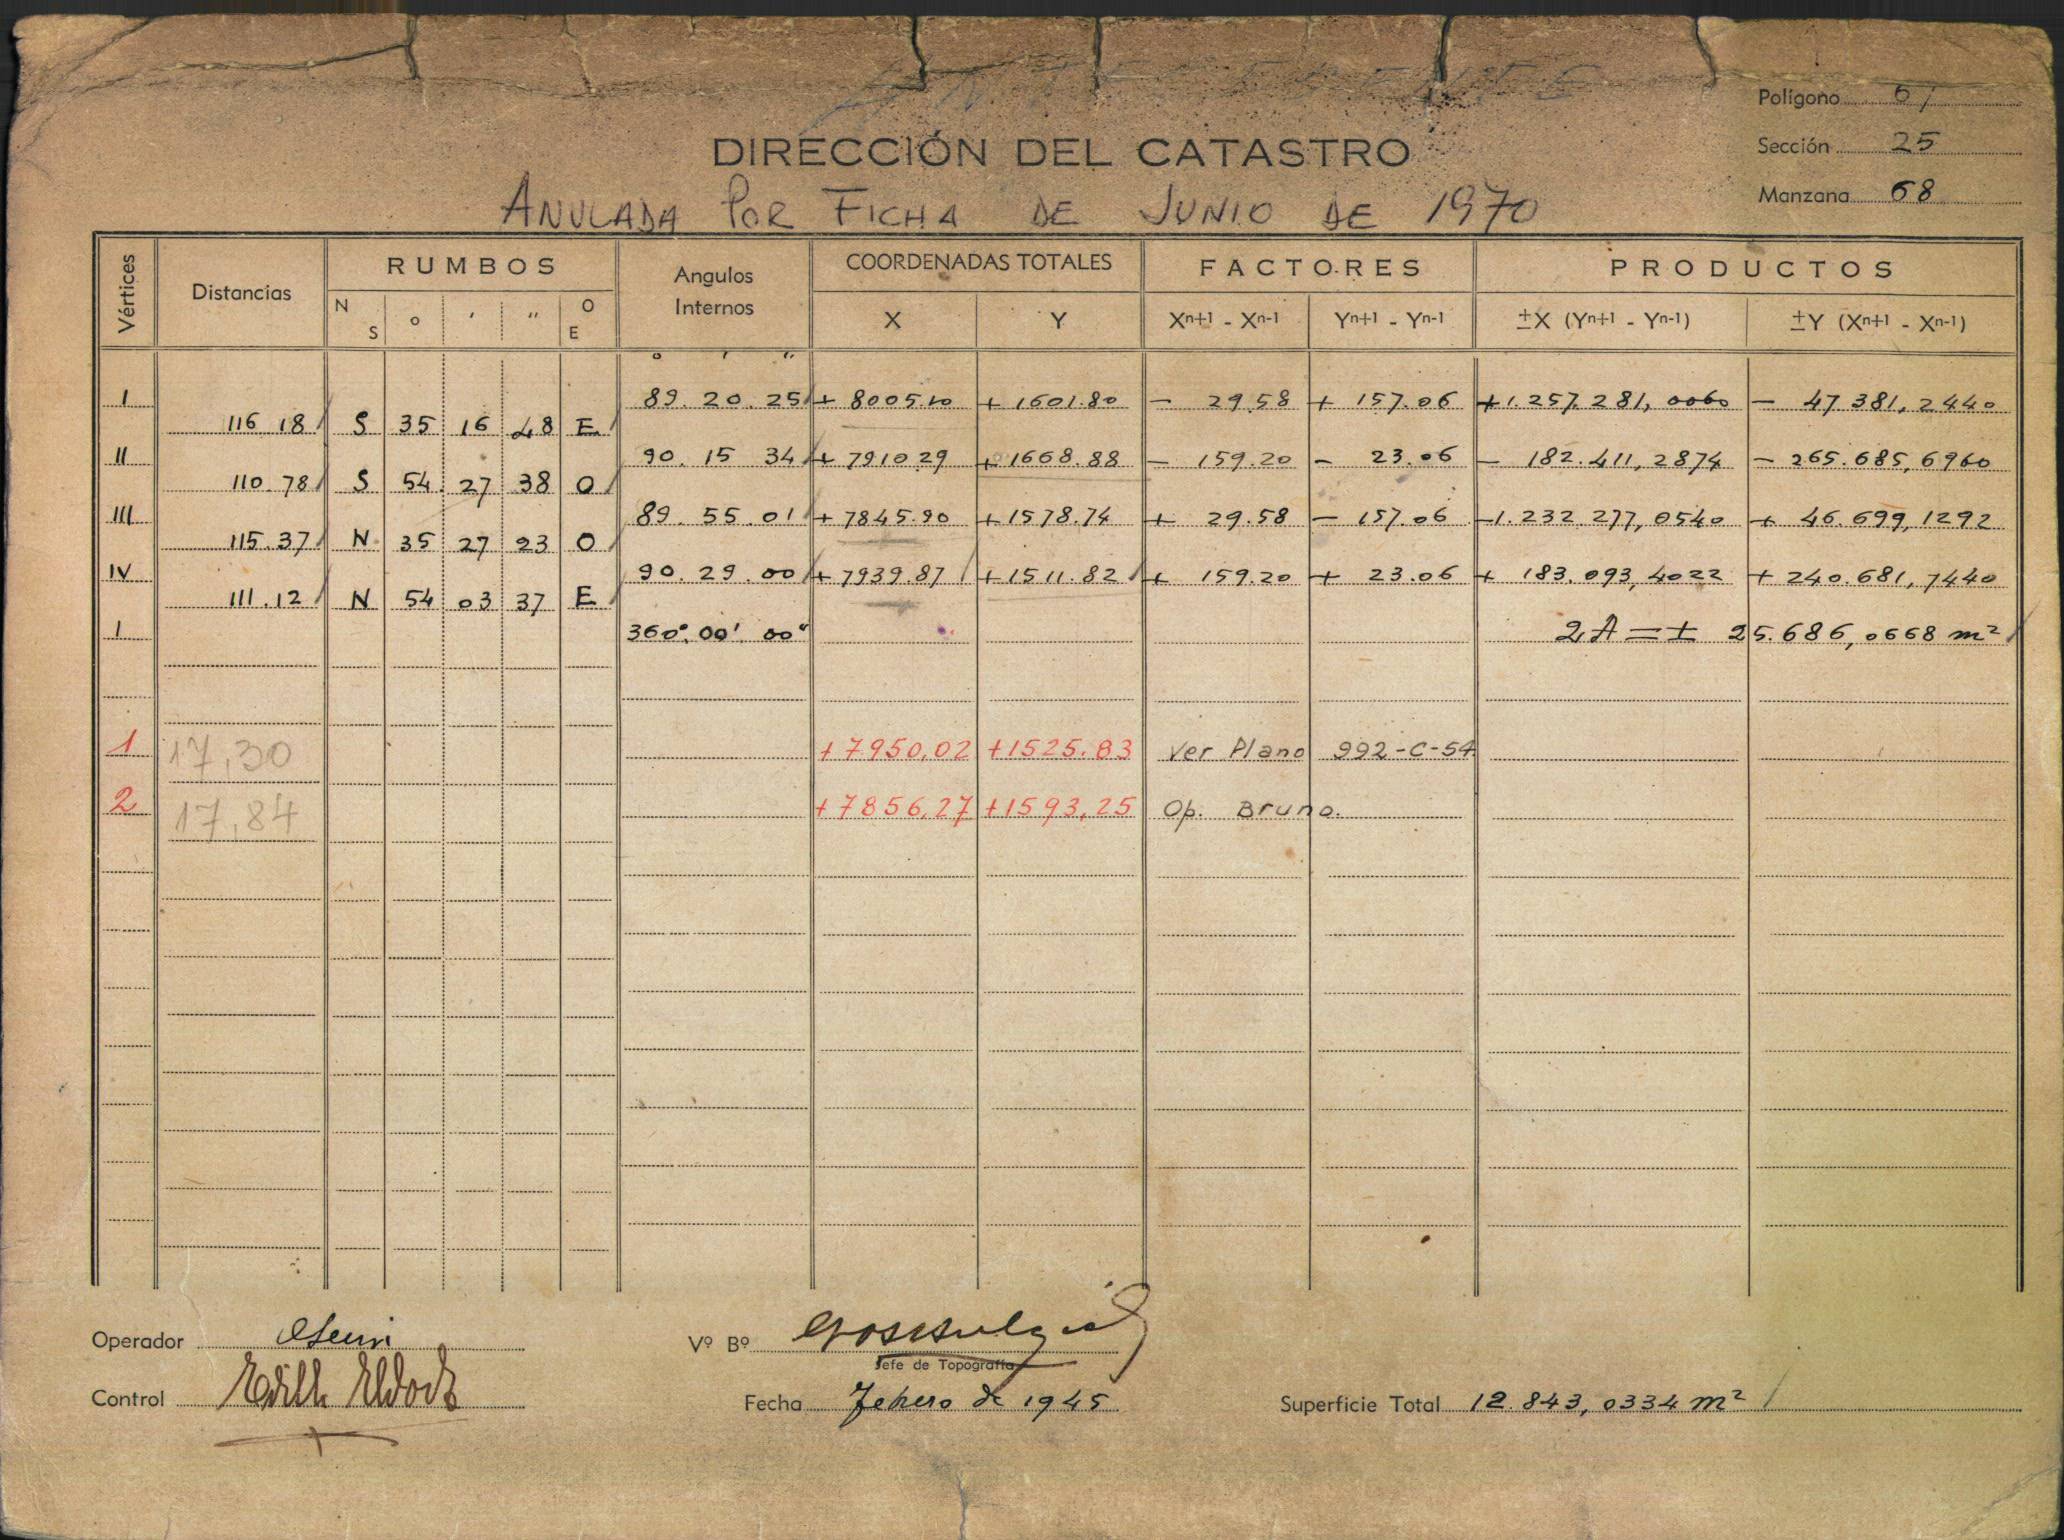 ANTECEDENTE
Polígono 61
DIRECCIÓN DEL CATASTRO
Sección 25
ANULADA POR FICHA DE JUNIO DE 1970
Manzana 68
Vértices Distancias RUMBOS Angulos Internos COORDENADAS TOTALES FACTORES PRODUCTOS
N S o ′ ″ O E X Y Xn+1 - Xn-1 Yn+1 - Yn-1 ±X (Yn+1 - Yn-1) ±Y (Xn+1 - Xn-1)
o ′ ″
I 89. 20. 25 + 8005.10 + 1601.80 - 29.58 + 157.06 +1.257.281,0060 - 47.381,2440
116.18 S 35 16 48 E
II 90. 15 34 + 7910.29 + 1668.88 - 159.20 - 23.06 - 182.411,2874 - 265.685,6960
110.78 S 54 27 38 O
III 89. 55. 01 + 7845.90 + 1578.74 + 29.58 - 157.06 -1.232.277,0540 + 46.699,1292
115.37 N 35 27 23 O
IV 90. 29. 00 + 7939.87 + 1511.82 + 159.20 + 23.06 + 183.093,4022 + 240.681,7440
111.12 N 54 03 37 E
I 360°. 00′. 00″ 2A = ± 25.686,0668 m²
1 17,30 +7950,02 +1525.83 Ver Plano 992-C-54
2 17,84 +7856,27 +1593,25 Op. Bruno.
Operador
Vº Bº
Jefe de Topografía
Control
Fecha Febrero de 1945
Superficie Total 12.843,0334 m²